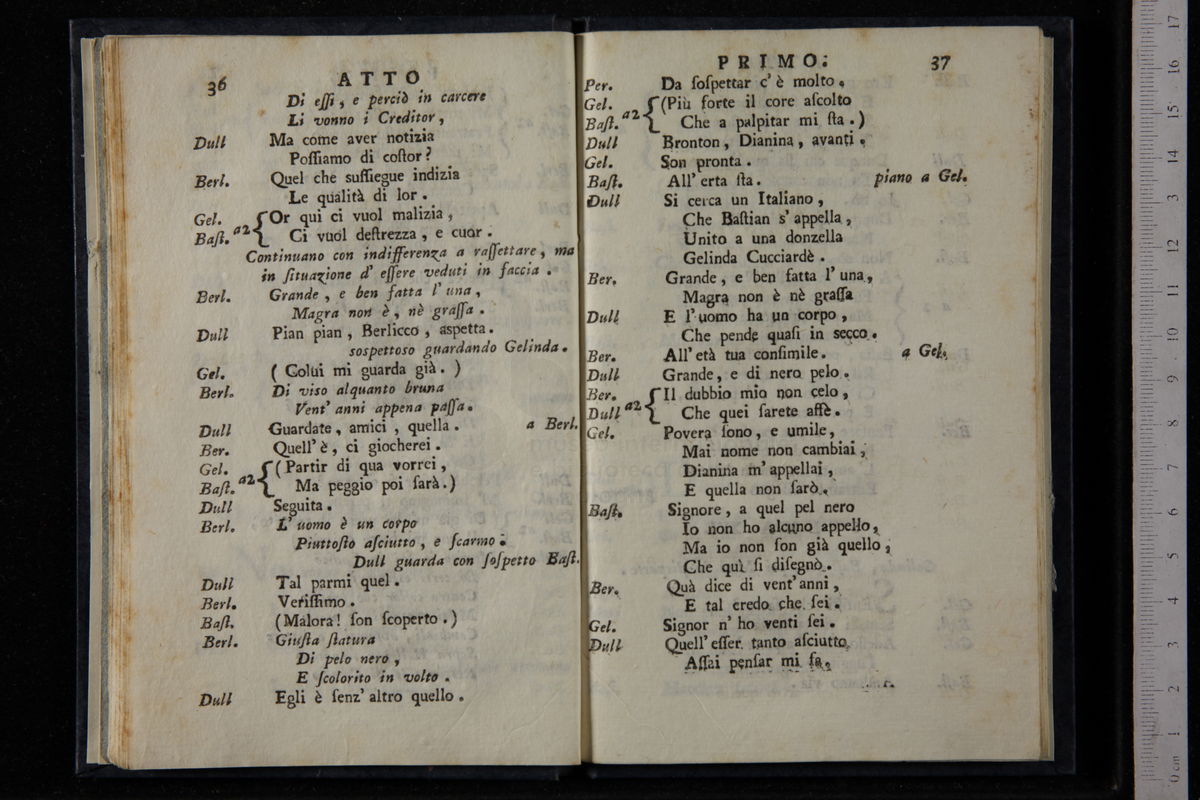 36 ATTO
Di eſſi, e perciò in carcere
Li vonno i Creditor,
Dull Ma come aver notizia
Poſſiamo di coſtor?
Berl. Quel che ſuſſiegue indizia
Le qualità di lor.
Gel. Or qui ci vuol malizia,
Baſt. a2 Ci vuol deſtrezza, e cuor.
Continuano con indifferenza a raſſettare, ma
in ſituazione d' eſſere veduti in faccia.
Berl. Grande, e ben fatta l' una,
Magra non è, nè graſſa.
Dull Pian pian, Berlicco, aſpetta.
sospettoso guardando Gelinda.
Gel. ( Colui mi guarda già. )
Berl. Di viso alquanto bruna
Vent' anni appena paſſa.
Dull Guardate, amici, quella. a Berl.
Ber. Quell' è, ci giocherei.
Gel. (Partir di qua vorrei,
Baſt. a2 Ma peggio poi ſarà.)
Dull Seguita.
Berl. L' uomo è un corpo
Piuttoſto aſciutto, e ſcarmo.
Dull guarda con ſoſpetto Baſt.
Dull Tal parmi quel.
Berl. Veriſſimo.
Baſt. (Malora! ſon ſcoperto.)
Berl. Giuſta ſtatura
Di pelo nero,
E ſcolorito in volto.
Dull Egli è ſenz' altro quello.
PRIMO. 37
Per. Da ſoſpettar c' è molto.
Gel. (Più forte il core aſcolto
Baſt. a2 Che a palpitar mi ſta.)
Dull Bronton, Dianina, avanti.
Gel. Son pronta.
Baſt. All' erta ſta. piano a Gel.
Dull Si cerca un Italiano,
Che Baſtian s' appella,
Unito a una donzella
Gelinda Cucciardè.
Ber. Grande, e ben fatta l' una,
Magra non è nè graſſa
Dull E l' uomo ha un corpo,
Che pende quaſi in secco.
Ber. All' età tua conſimile. a Gel.
Dull Grande, e di nero pelo.
Ber. Il dubbio mio non celo,
Dull a2 Che quei ſarete affè.
Gel. Povera ſono, e umile,
Mai nome non cambiai,
Dianina m' appellai,
E quella non ſarò.
Baſt. Signore, a quel pel nero
Io non ho alcuno appello,
Ma io non ſon già quello,
Che quì ſi diſegnò.
Ber. Quà dice di vent' anni,
E tal credo che ſei.
Gel. Signor n' ho venti ſei.
Dull Quell' eſſer tanto aſciutto
Aſſai penſar mi fa.